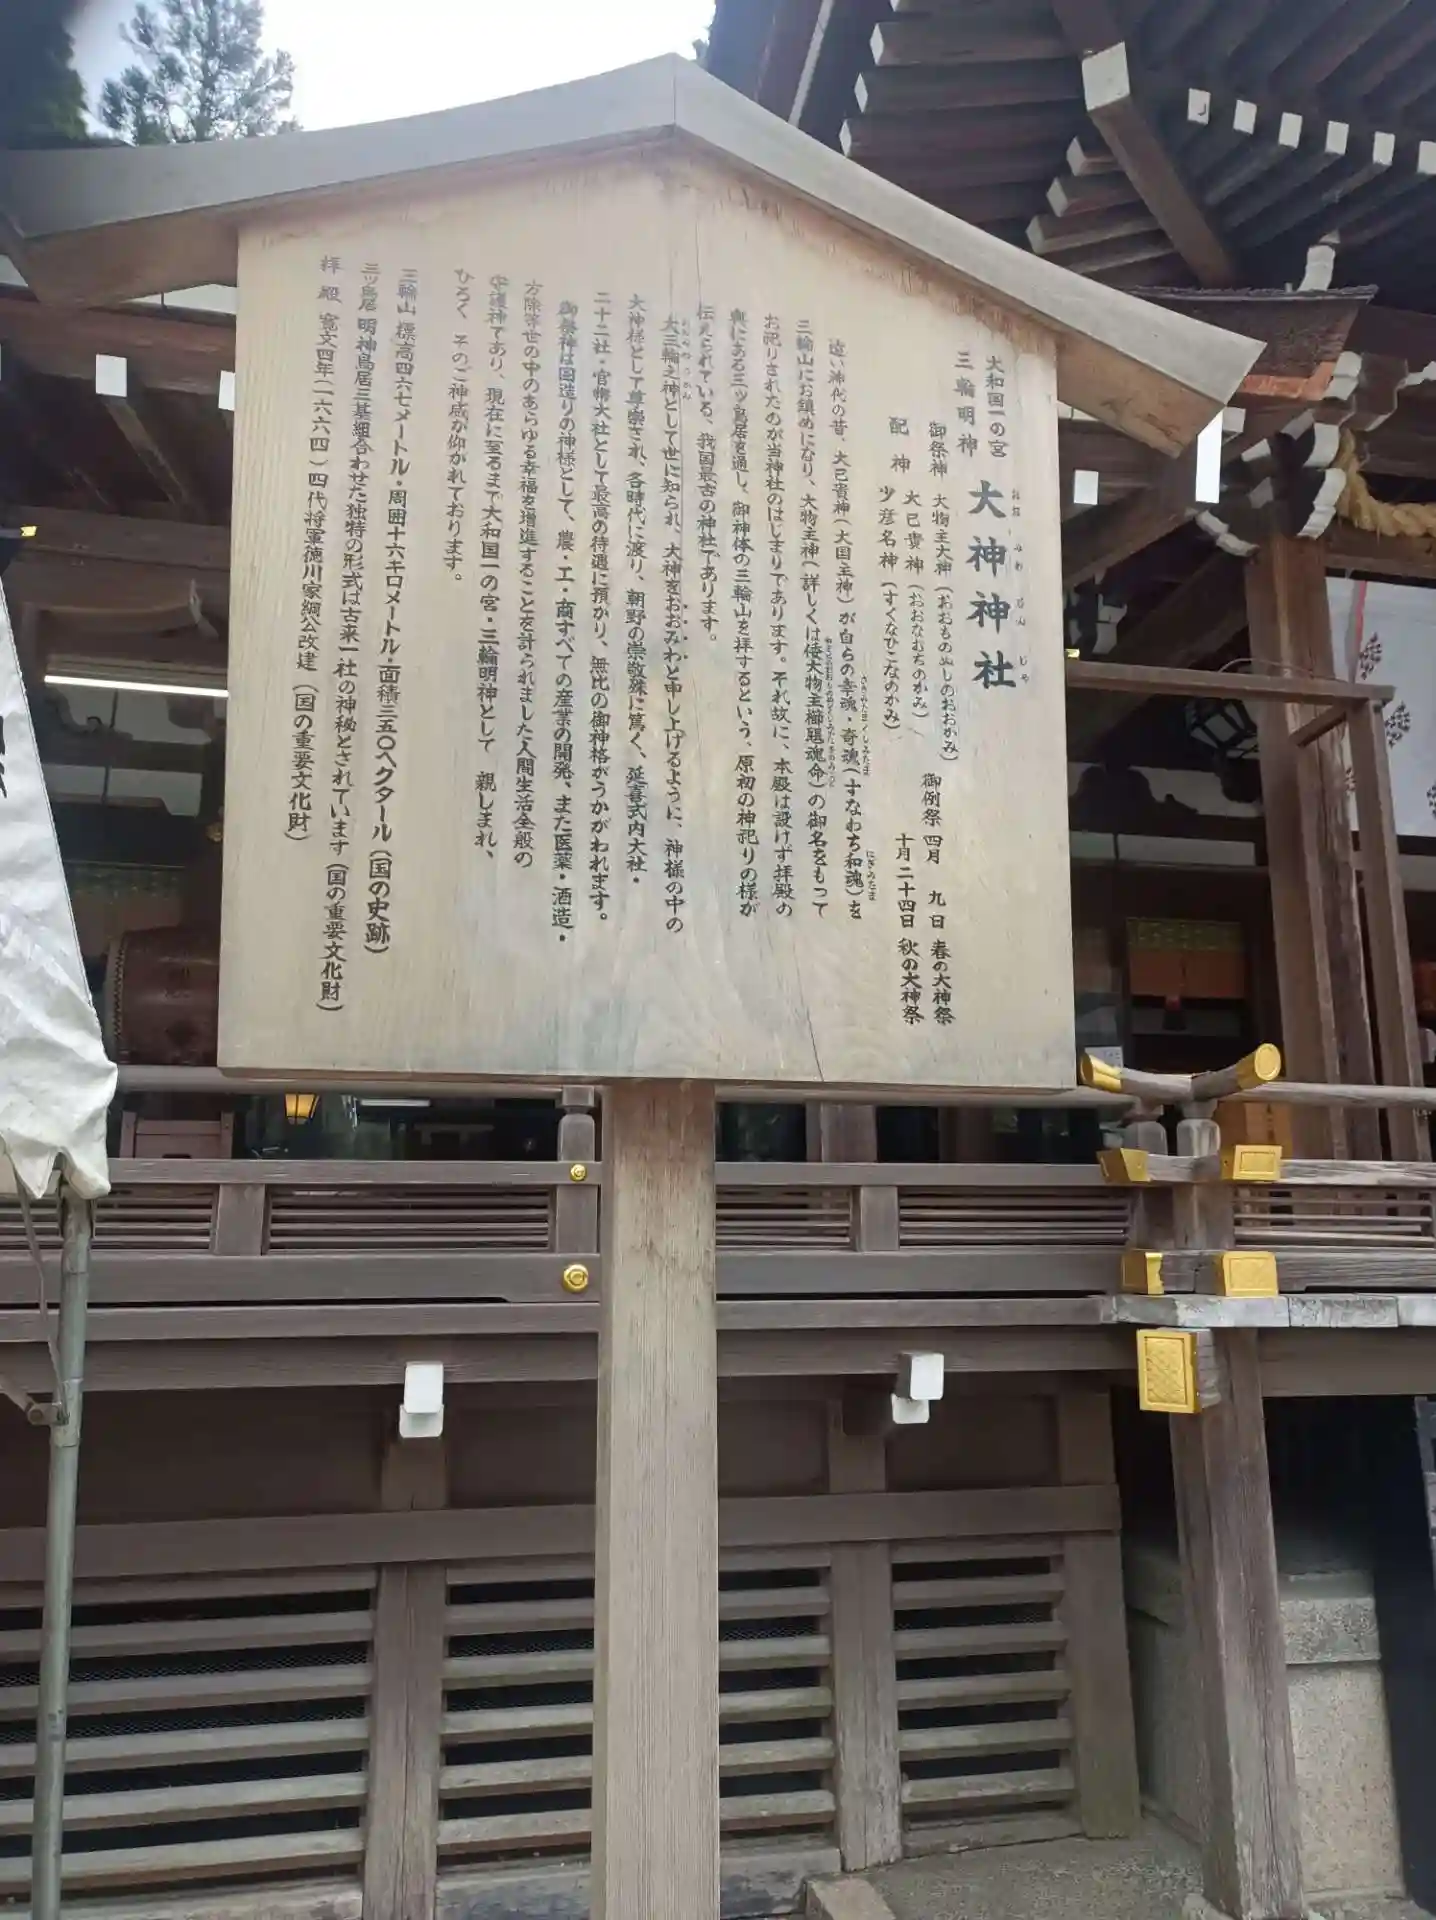 大和国一の宮
三輪明神
大神神社
おお みわ じん じゃ
御祭神 大物主大神（おおものぬしのおおかみ）
配神 大己貴神（おおなむちのかみ）
少彦名神（すくなひこなのかみ）
御例祭 四月 九日 春の大神祭
十月二十四日 秋の大神祭
遠い神代の昔、大己貴神（大国主神）が自らの幸魂・奇魂（すなわち和魂）を
さきみたま くしみたま にぎみたま
三輪山にお鎮めになり、大物主神（詳しくは倭大物主櫛𤭖魂命）の御名をもって
お祀りされたのが当神社のはじまりであります。それ故に、本殿は設けず拝殿の
奥にある三ツ鳥居を通し、御神体の三輪山を拝するという、原初の神祀りの様が
伝えられている、我国最古の神社であります。
大三輪之神として世に知られ、大神をおおみわと申し上げるように、神様の中の
おおみわのかみ
大神様として尊崇され、各時代に渡り、朝野の崇敬殊に篤く、延喜式内大社・
二十二社・官幣大社として最高の待遇に預かり、無比の御神格がうかがわれます。
御祭神は国造りの神様として、農・工・商すべての産業の開発、また医薬・酒造・
方除等世の中のあらゆる幸福を増進することを計られました人間生活全般の
守護神であり、現在に至るまで大和国一の宮・三輪明神として 親しまれ、
ひろく そのご神威が仰がれております。
三輪山 標高四六七メートル・周囲十六キロメートル・面積三五〇ヘクタール（国の史跡）
三ツ鳥居 明神鳥居三基組合わせた独特の形式は古来一社の神秘とされています（国の重要文化財）
拝殿 寛文四年（一六六四）四代将軍徳川家綱公改建（国の重要文化財）